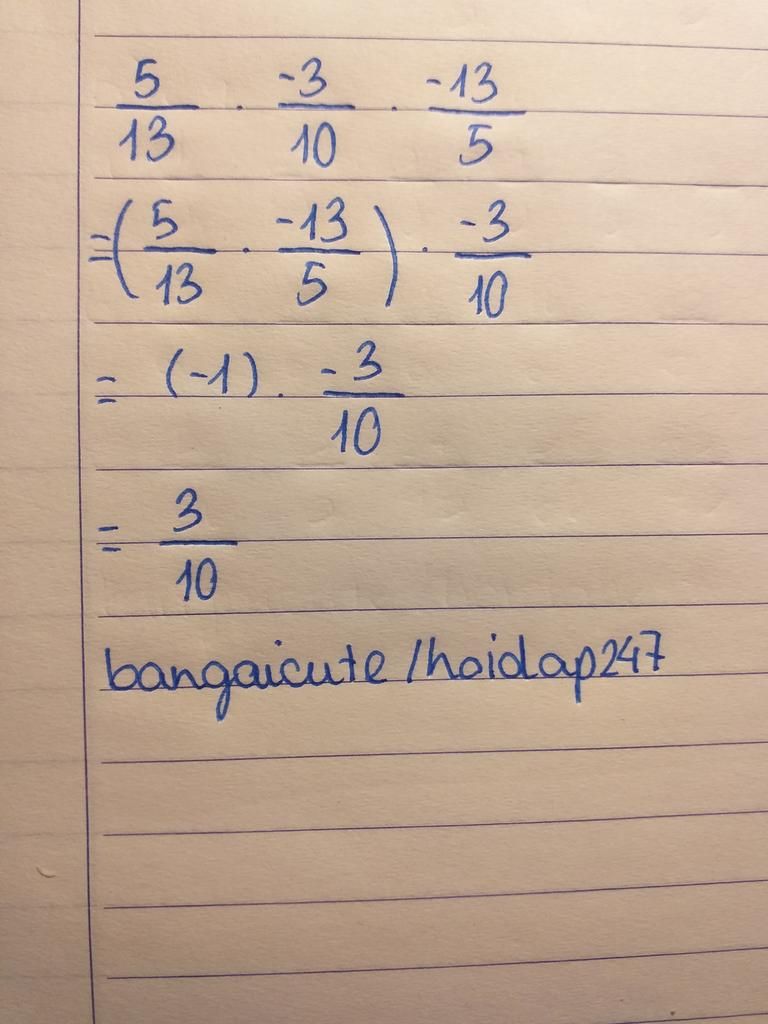 5/13 . -3/10 . -13/5
= (5/13 . -13/5) . -3/10
= (-1) . -3/10
= 3/10
bangaicute /hoidap247